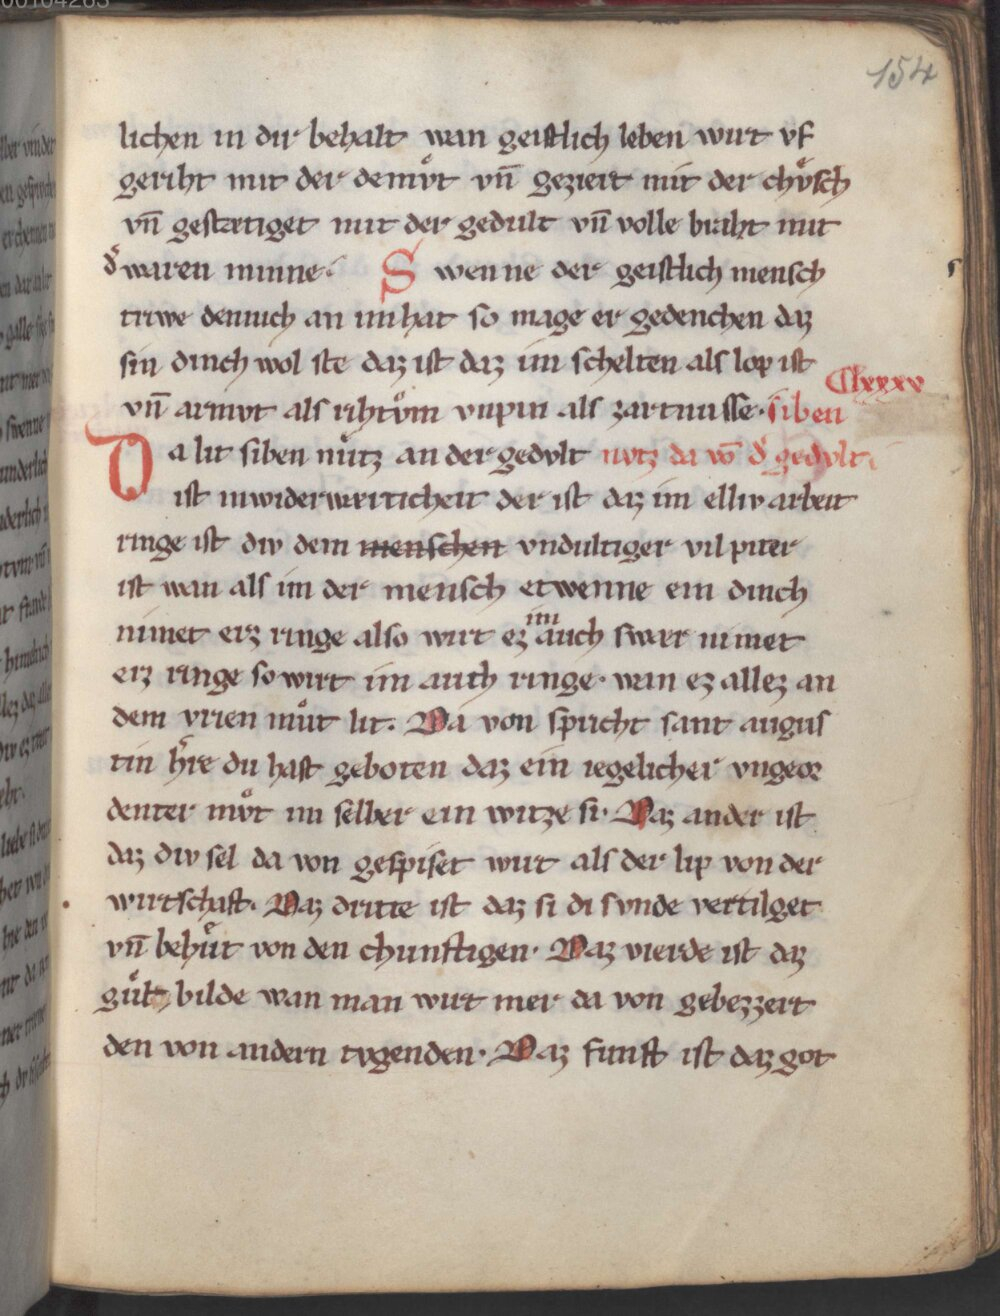 154
lichen in dir behalt wan geistlich leben wirt vf
geriht mit der demvͤt vn̄ gezieit mit der chvͤsch
vn̄ gestætiget mit der gedult vn̄ volle braht mit
dͤ waren minne. Swenne der geistlich mensch
trwe demuch an im hat so mage er gedenchen daz
sin dinch wol ste daz ist daz im schelten als lop ist
Clxxxv
vn̄ armvt als rihtvͦm vnpin als zartnusse. siben
Da lit siben nuͤtz an der gedvlt nvtz da vō dͤ gedvlt
ist inwiderwærticheit der ist daz im elliv arbeit
ringe ist div dem menschen vndultiger vil piter
ist wan als im der mensch etwenne ein dinch
nimet erz ringe also wirt ez im auch swær nimet
erz ringe so wirt im auch ringe. wan ez allez an
dem vrien muͦt lit. Da von spricht sant augus
tin hͤre du hast geboten daz ein iegelicher vngeor
denter mvͦt im selber ein witze si. Daz ander ist
daz div sel da von gespiset wirt als der lip von der
wirtschaft. Daz dritte ist daz si di svnde vertilget
vn̄ behuͤt von den chunftigen. Daz vierde ist daz
guͤt bilde wan man wirt mer da von gebezzert
den von andern tvgenden. Daz funft ist daz got